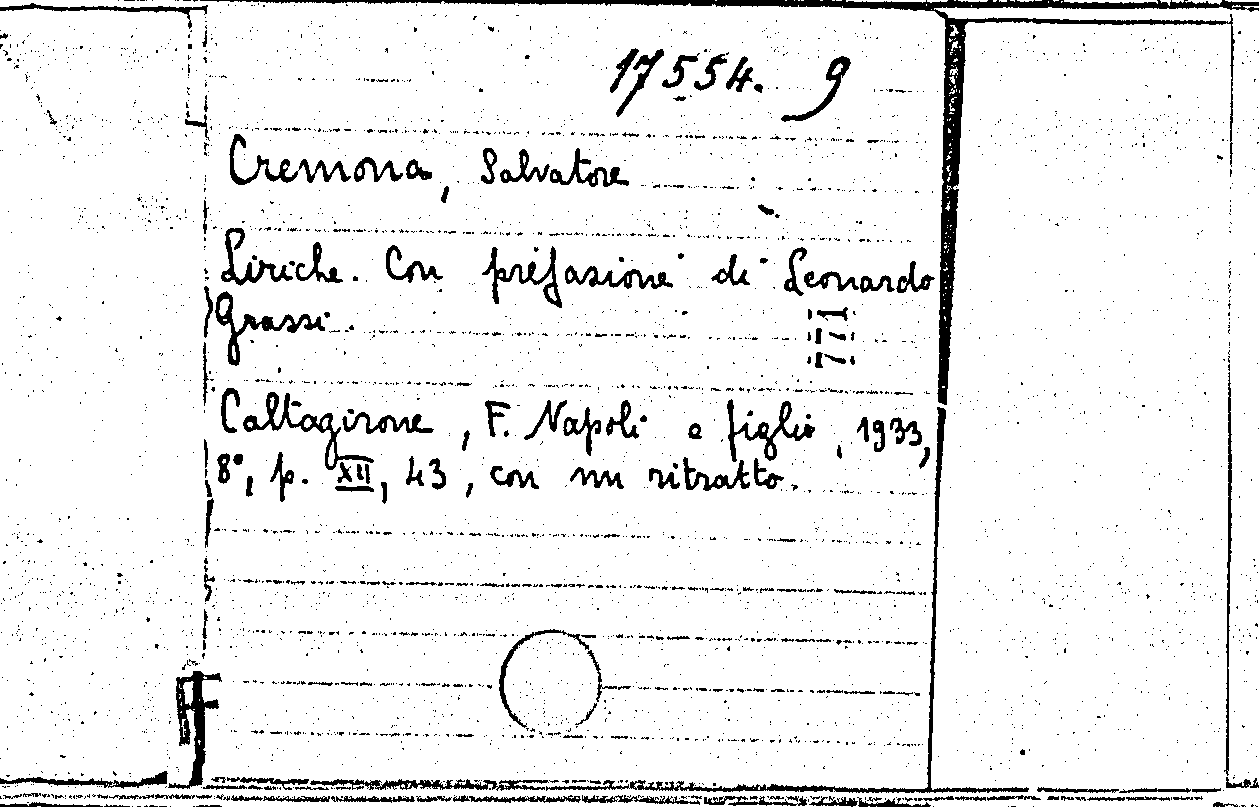 17554. 9
Cremona, Salvatore
Liriche. Con prefazione di Leonardo
Grassi.
771
Caltagirone, F. Napoli e figlio, 1933,
8°, p. XII, 43, con un ritratto.